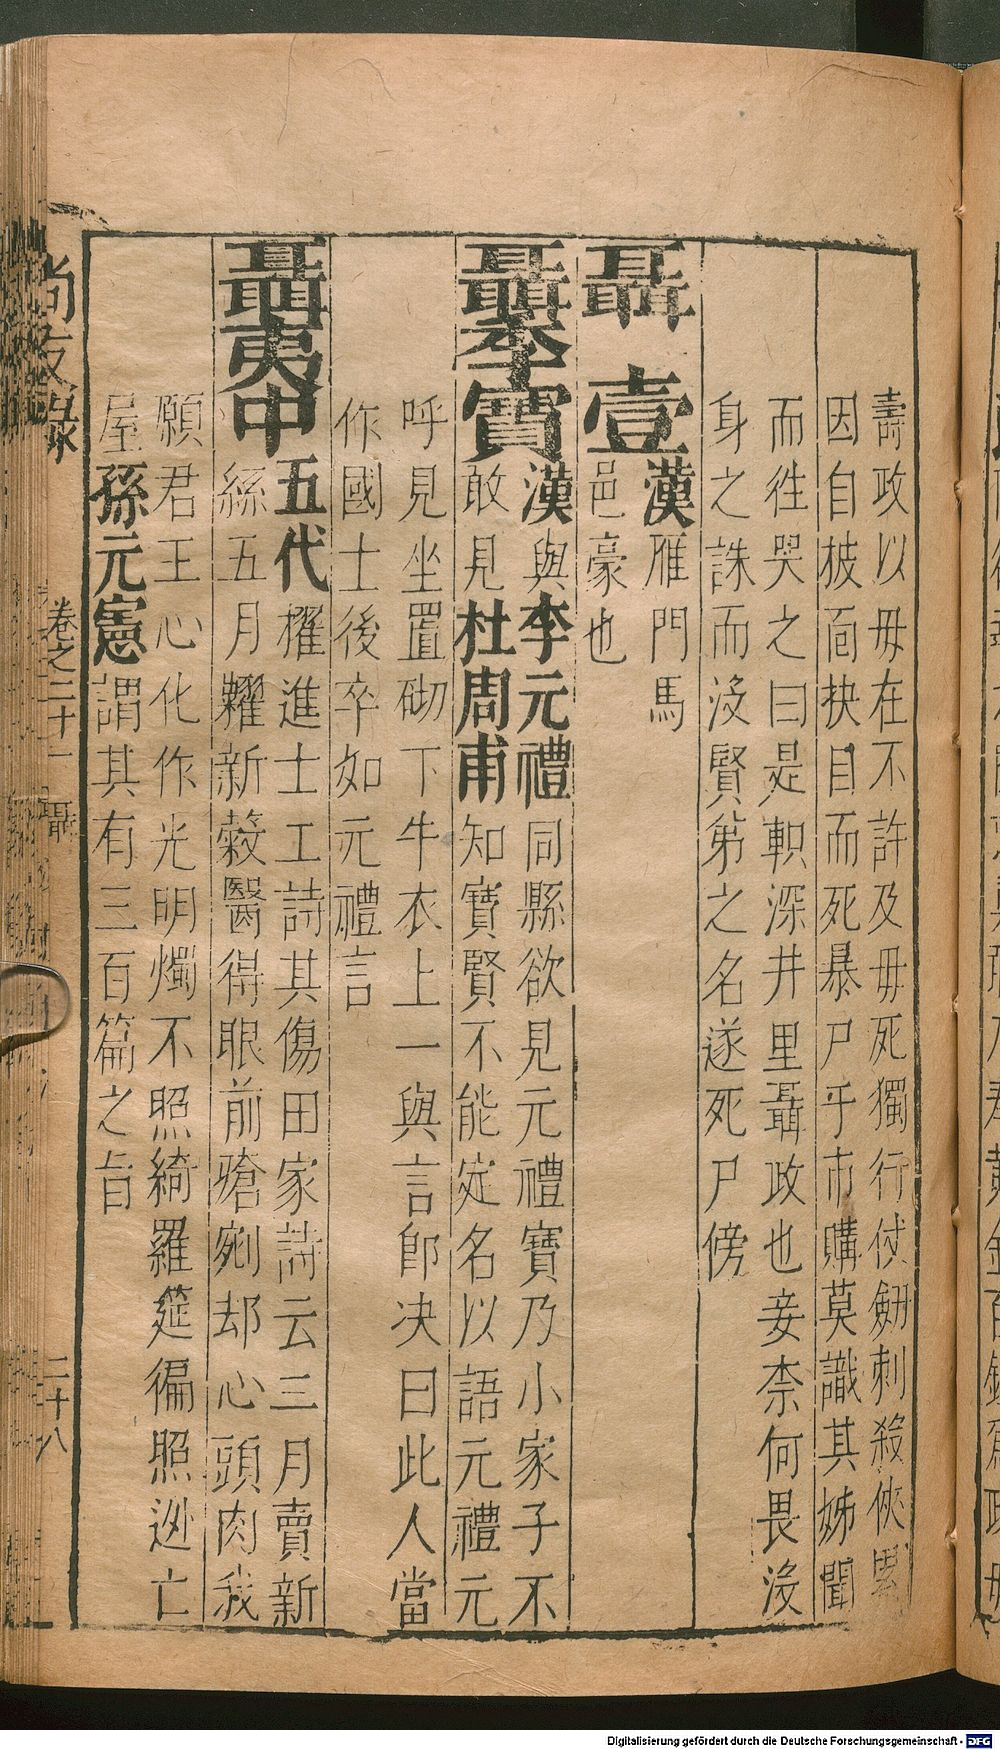 壽政以毋在不許及毋死獨行仗劒刺殺俠累
因自披面抉目而死暴尸乎市購莫識其姊聞
而徃哭之曰是軹深井里聶政也妾柰何畏沒
身之誅而沒賢弟之名遂死尸傍
聶壹漢雁門馬
邑豪也
聶季寶漢與李元禮同縣欲見元禮寶乃小家子不
敢見杜周甫知寶賢不能定名以語元禮元
呼見坐置砌下牛衣上一與言卽决曰此人當
作國士後卒如元禮言
聶夷中五代擢進士工詩其傷田家詩云三月賣新
絲五月糶新穀醫得眼前瘡剜却心頭肉我
願君王心化作光明燭不照綺羅筵徧照逃亡
屋孫元憲謂其有三百篇之旨
尚友錄 卷之二十一 聶 二十八
Digitalisierung gefördert durch die Deutsche Forschungsgemeinschaft - DFG